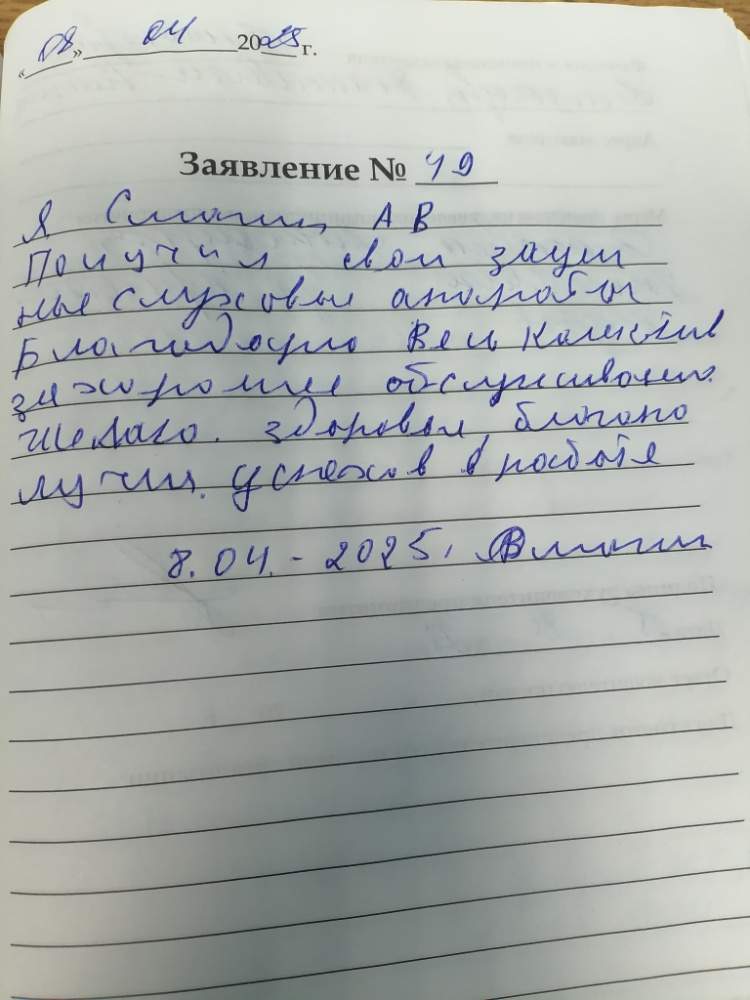 «08» 04 2025 г.
Заявление № 49
Я АВ
Получил свои зауш
ные слуховые апораты
Благодарю Весь Колектив
за хорошее обслуживание.
Желаю. здоровья благопо
лучия. успехов в работе
8.04.-2025.